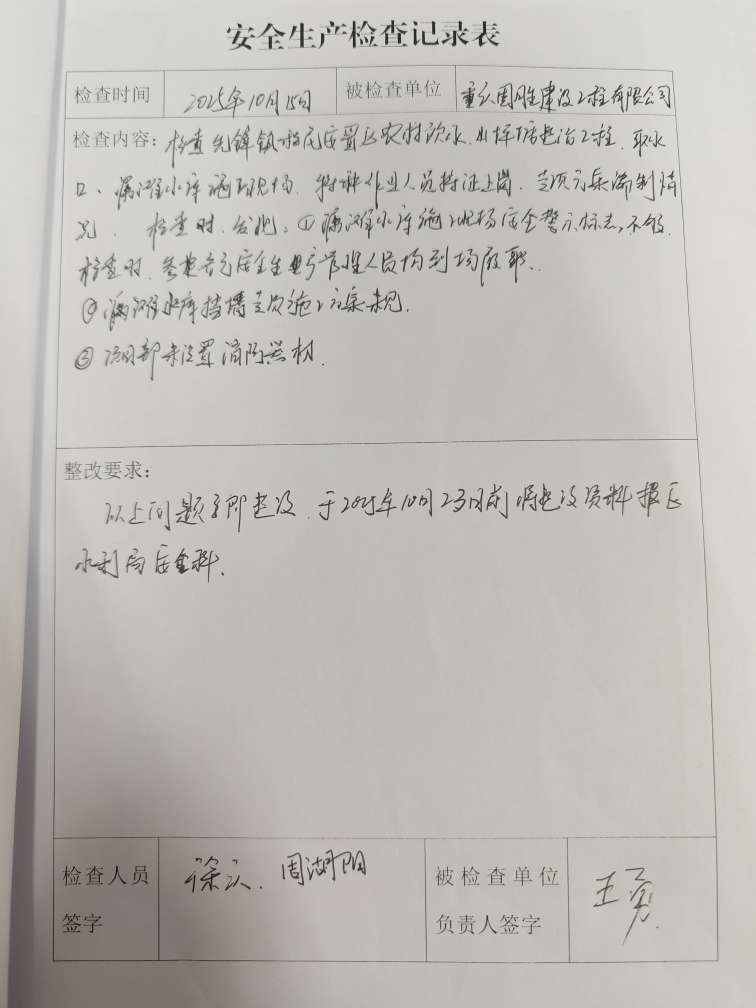 安全生产检查记录表
检查时间 2025年10月15日 被检查单位 重庆国胜建设工程有限公司
检查内容: 检查先锋镇移民安置区农村饮水、山坪塘整治工程、取水
口、滩水库施工现场、特种作业人员持证上岗、专项方案编制情
况。检查时,发现:①滩水库施工现场安全警示标志不够,
检查时,参建各方安全生产管理人员均到场履职。
②滩水库挡墙专项施工方案未见.
③项目部未设置消防器材.
整改要求:
以上问题立即整改,于2025年10月23日前将整改资料报区
水利局安全科.
检查人员 被检查单位
签字 周湖阳 负责人签字 王勇